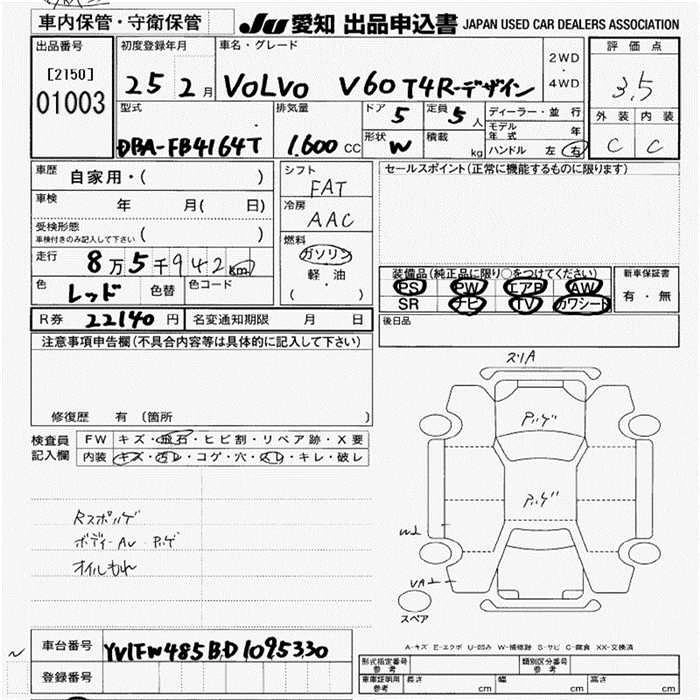 車内保管・守衛保管
JU 愛知 出品申込書 JAPAN USED CAR DEALERS ASSOCIATION
出品番号
[2150]
01003
初度登録年月
25 2月
車名・グレード
VOLVO V60 T4 R-デザイン
2WD
・
4WD
評価点
3.5
外装 内装
C C
型式
DBA-FB4164T
排気量
1.600 CC
ドア 5
定員 5人
形状 W
積載 kg
ディーラー・並行
モデル年式 年
ハンドル 左 右
車歴
自家用・( )
車検 年 月( 日)
受検形態
車検付きのみ記入して下さい ( )
走行 8万5千942km
色 レッド 色替 色コード
シフト
FAT
冷房
AAC
燃料
ガソリン
軽・油
( )
セールスポイント(正常に機能するものに限ります)
装備品(純正品に限り○をつけてください)
PS PW エアB AW
SR ナビ TV カワシート
新車保証書
有・無
後日品
R券 22140 円 名変通知期限 月 日
注意事項申告欄(不具合内容等は具体的に記入して下さい)
修復歴 有 (箇所 )
検査員
記入欄
FW キズ・飛石・ヒビ割・リペア跡・X要
内装 キズ・汚レ・コゲ・穴・スレ・キレ・破レ
Rスポルゲ
ボディーAU
オイルもれ
スリA
スペア
A-キズ E-エクボ U-凹み W-補修跡 S-サビ C-腐食 XX-交換済
車台番号 YV1FW485BD1095330
登録番号
形式指定番号
参考
類別区分番号
参考
車庫証明用
参考
長さ cm 幅 cm 高さ cm